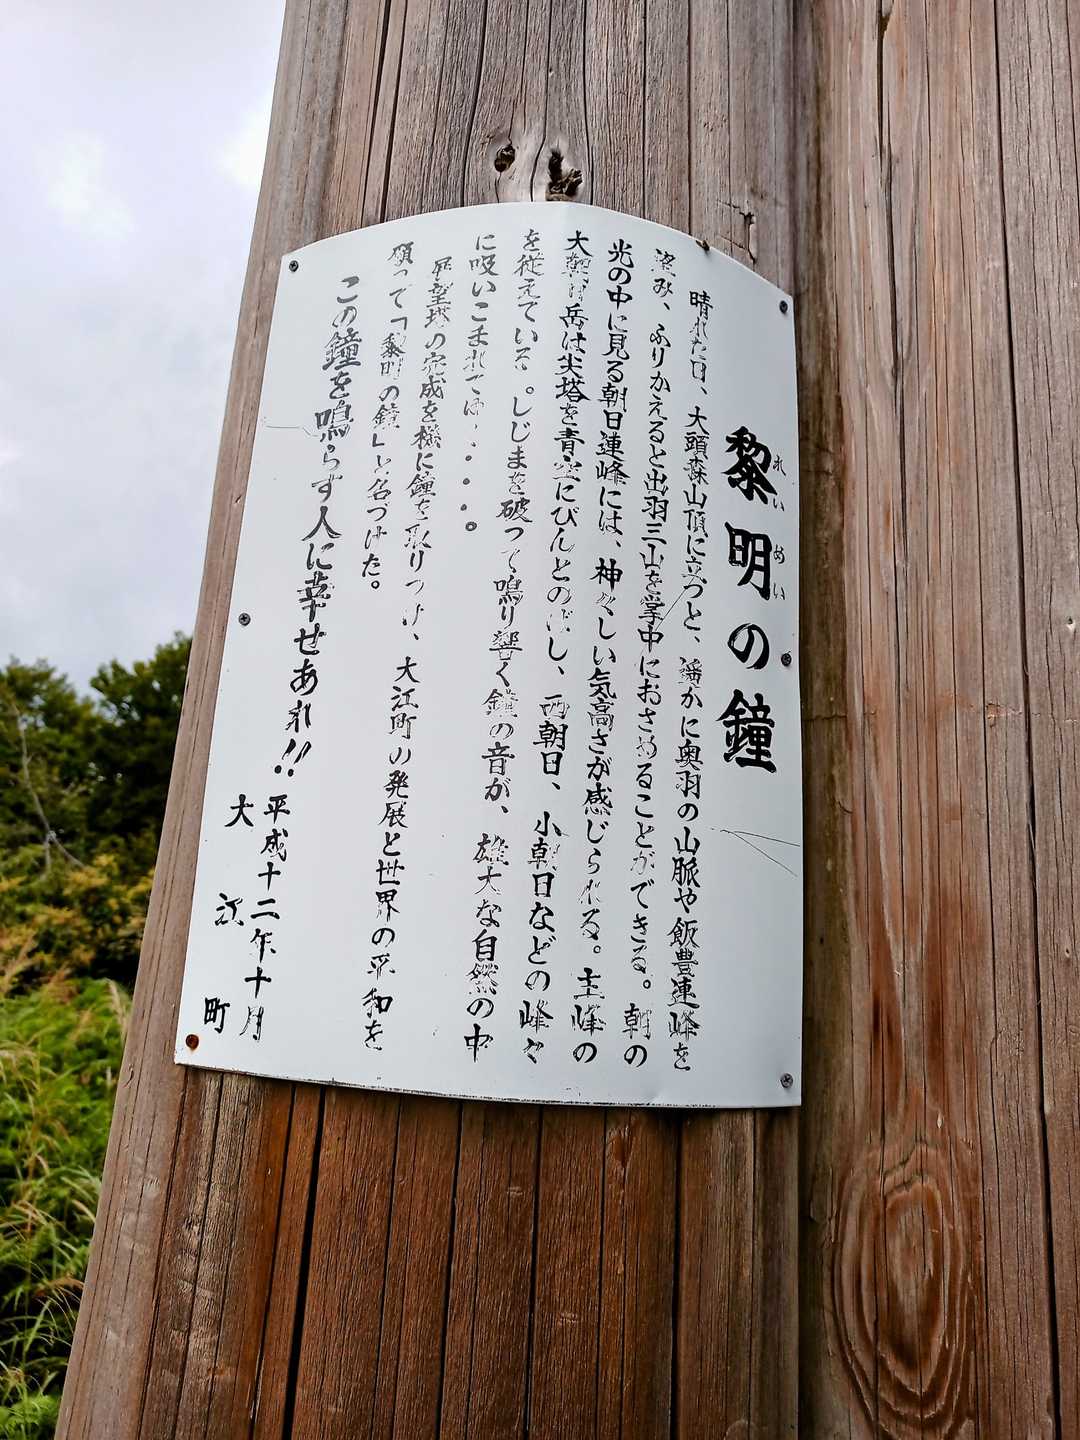 黎明の鐘
れいめい
晴れた日、大頭森山頂に立つと、遥かに奥羽の山脈や飯豊連峰を
望み、ふりかえると出羽三山を掌中におさめることができる。朝の
光の中に見る朝日連峰には、神々しい気高さが感じられる。主峰の
大朝日岳は尖塔を青空にびんとのばし、西朝日、小朝日などの峰々
を従えている。しじまを破って鳴り響く鐘の音が、雄大な自然の中
に吸いこまれてゆ・・・・。
展望塔の完成を機に鐘を取りつけ、大江町の発展と世界の平和を
願って「黎明の鐘」と名づけた。
この鐘を鳴らす人に幸せあれ!!
平成十二年十月
大江町